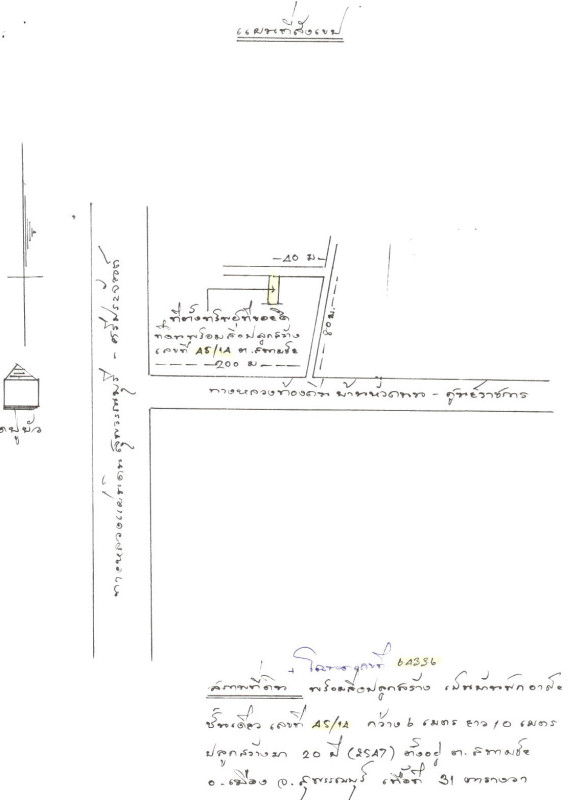 แผนที่สังเขป
40 ม.
80 ม.
ที่ตั้งทรัพย์ที่ขอยึด
ที่ดินพร้อมสิ่งปลูกสร้าง
เลขที่ A5/1A ต.สนามชัย
200 ม
ทางหลวงท้องถิ่น บ้านหัวถนน - ศูนย์ราชการ
ทางหลวงแผ่นดิน สุพรรณบุรี - ศรีประจันต์
โฉนดเลขที่ 64336
สภาพที่ดิน พร้อมสิ่งปลูกสร้าง เป็นบ้านพักอาศัย
ชั้นเดียว เลขที่ A5/1A กว้าง 6 เมตร ยาว 10 เมตร
ปลูกสร้างมา 20 ปี (25A7) ตั้งอยู่ ต.สนามชัย
อ.เมือง จ.สุพรรณบุรี เนื้อที่ 31 ตารางวา